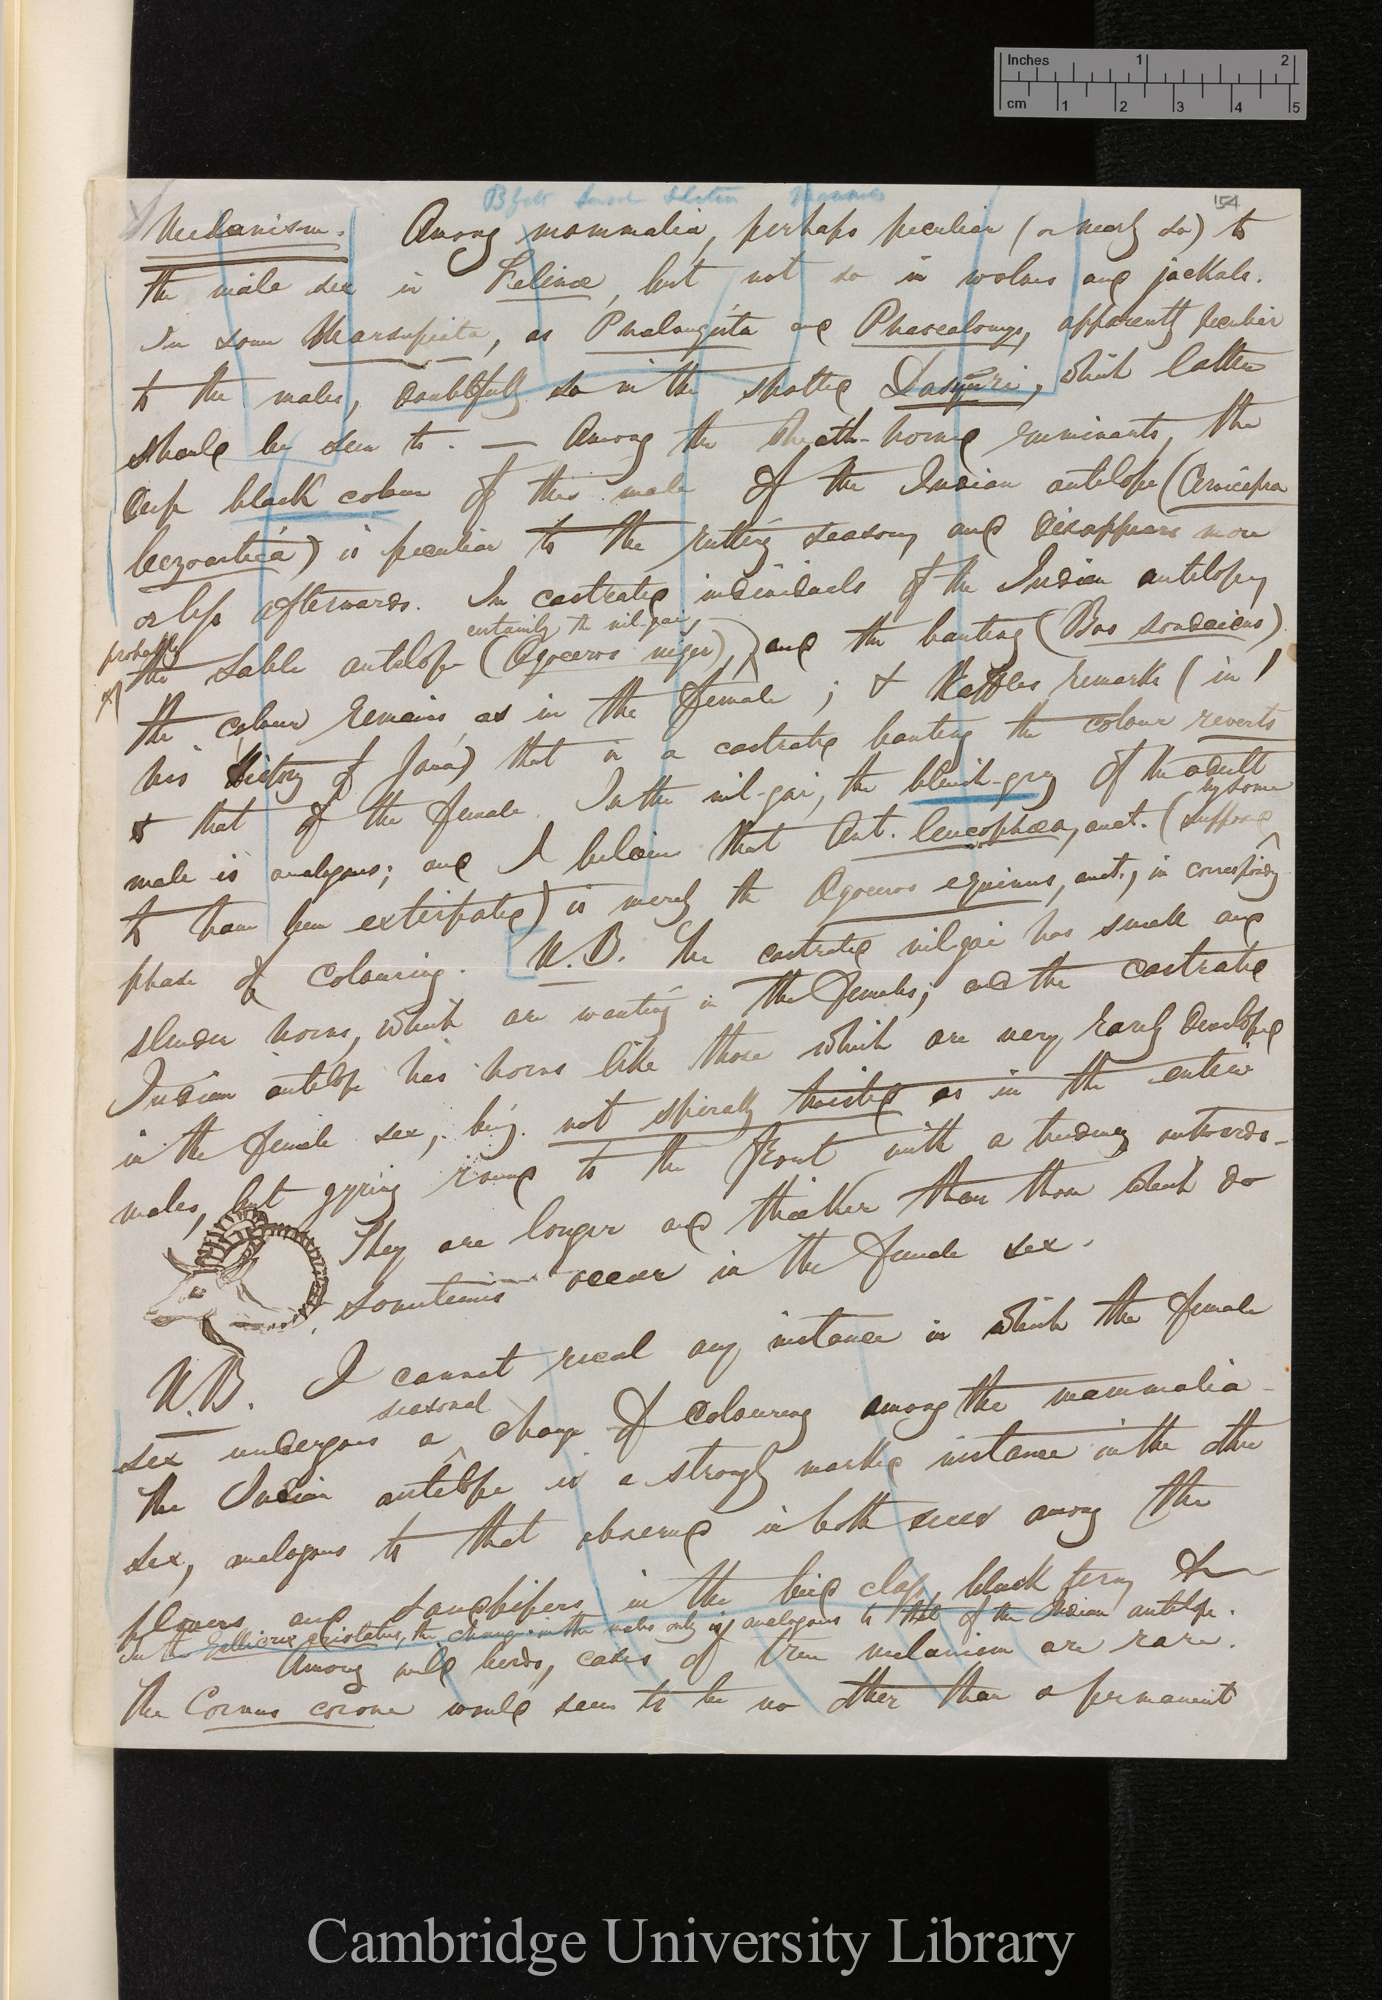 Inches 1 2
cm 1 2 3 4 5
Blyth Sexual Selection Mammals
154
Melanism. Among mammalia, perhaps peculiar (or nearly so) to
the male sex in Felinæ, but not so in wolves and jackals.
In some Marsupiata, as Phalangista and Phascalomys, apparently peculiar
to the males, doubtfully so in the spotted Dasyuri, which latter
should be seen to. — Among the sheath-horned ruminants, the
deep black colour of the male of the Indian antelope (Cervicapra
bezoartica) is peculiar to the rutting season, and disappears more
or less afterwards. In castrated individuals of the Indian antelope,
certainly the nil-gai,
probably
the sable antelope (Ægoceros niger), and the banteng (Bos sondaicus)
the colour remains as in the female; & Raffles remarks (in
his 'History of Java') that in a castrated banteng the colour reverts
to that of the female. In the nil-gai, the blueish-grey of the adult
male is analogous; and I believe that Ant. leucophæa, auct. (supposed
by some
to have been extirpated) is merely the Ægoceros equinus, auct., in corresponding
phase of colouring. N.B. The castrated nil-gai has small and
slender horns, which are wanting in the females; and the castrated
Indian antelope has horns like those which are very rarely developed
in the female sex, being not spirally twisted as in the entire
males, but gyring round to the front with a tendency outwards.
They are longer and thicker than those which do
sometimes occur in the female sex.
N.B. I cannot recal any instance in which the female
seasonal
sex undergoes a change of colouring among the mammalia.
The Indian antelope is a strongly marked instance in the other
sex, analogous to that observed in both sexes among the
plovers and sandpipers in the bird class, black terns &c
In the Gallicrex cristatus, the change in the males only is analogous to that of the Indian antelope.
Among wild birds, cases of true melanism are rare.
The Corvus corone would seem to be no other than a permanent
Cambridge University Library